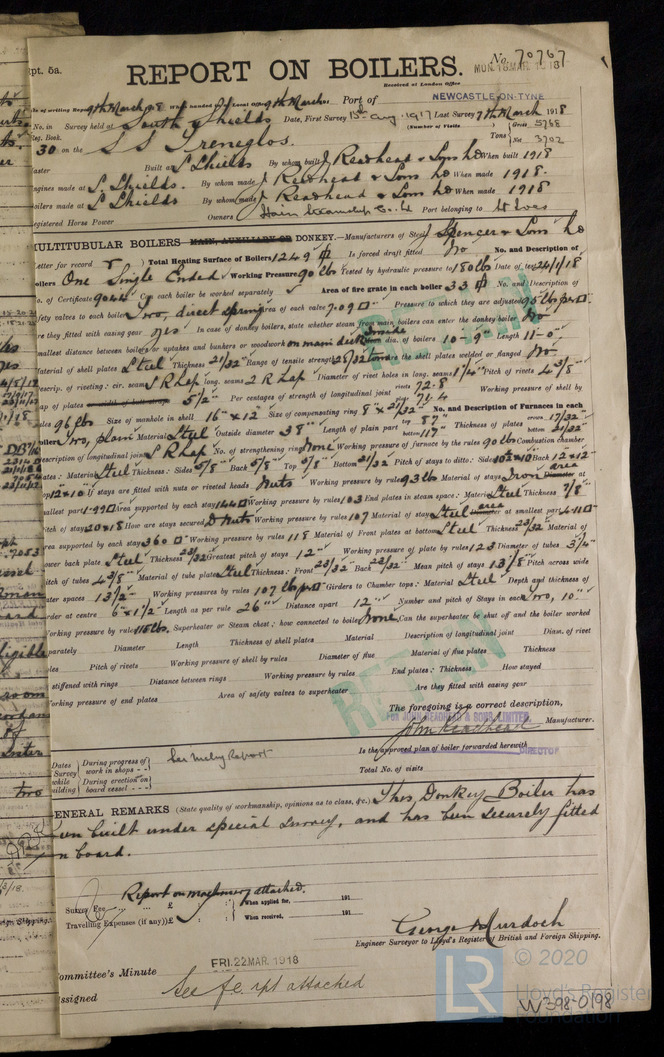 Rpt. 5a.
No. 70767
REPORT ON BOILERS.
MON. 18 MAR. 1918
Received at London Office
Date of writing Report 9th March 1918 When handed in at Local Office 9th March Port of NEWCASTLE-ON-TYNE
No. in Survey held at South Shields Date, First Survey 15th Aug. 1917 Last Survey 7th March 1918
Reg. Book. (Number of Visits) Gross 5768
30 on the S S Treneglos. Tons Net 3702
Master Built at S Shields By whom built J Readhead & Sons Ld When built 1918
Engines made at S. Shields. By whom made J Readhead & Sons Ld When made 1918.
Boilers made at S Shields By whom made J Readhead & Sons Ld When made 1918
Registered Horse Power Owners Hain Steamship Co. Ld Port belonging to St Ives
MULTITUBULAR BOILERS MAIN, AUXILIARY OR DONKEY.—Manufacturers of Steel J Spencer & Sons Ld
Letter for record r Total Heating Surface of Boilers 1249 Is forced draft fitted No No. and Description of
Boilers One Single Ended Working Pressure 90 lbs Tested by hydraulic pressure to 180 lbs Date of test 24/1/18
No. of Certificate 9044 Can each boiler be worked separately Area of fire grate in each boiler 33 No. and Description of
safety valves to each boiler Two, direct spring Area of each valve 7.09 Pressure to which they are adjusted 95 lbs per
Are they fitted with easing gear Yes In case of donkey boilers, state whether steam from main boilers can enter the donkey boiler No
Smallest distance between boilers or uptakes and bunkers or woodwork on main deck Inside dia. of boilers 10-9" Length 11-0"
Material of shell plates Steel Thickness 21/32 Range of tensile strength 28/32 tons Are the shell plates welded or flanged No
Descrip. of riveting: cir. seams S R Lap long. seams 2 R Lap Diameter of rivet holes in long. seams 1 1/4" Pitch of rivets 4 3/8"
Lap of plates or width of butt straps 5 1/2" Per centages of strength of longitudinal joint rivets 72.8 plate 71.4 Working pressure of shell by
rules 96 lbs Size of manhole in shell 16" x 12" Size of compensating ring 8" x 21/32" No. and Description of Furnaces in each
boiler Two, plain Material Steel Outside diameter 38" Length of plain part top 87" bottom 117" Thickness of plates crown 17/32" bottom 21/32"
Description of longitudinal joint S R Lap No. of strengthening rings None Working pressure of furnace by the rules 90 lbs Combustion chamber
plates: Material Steel Thickness: Sides 5/8" Back 5/8" Top 5/8" Bottom 21/32 Pitch of stays to ditto: Sides 10 1/2 x 10 Back 12 x 12"
Top 12 x 10 If stays are fitted with nuts or riveted heads Nuts Working pressure by rules 93 lbs Material of stays Iron area Diameter at
smallest part 1.99 Area supported by each stay 144 Working pressure by rules 103 End plates in steam space: Material Steel Thickness 7/8"
Pitch of stays 20 x 18 How are stays secured D Nuts Working pressure by rules 107 Material of stays Steel area at smallest part 4.11
Area supported by each stay 360 Working pressure by rules 118 Material of Front plates at bottom Steel Thickness 23/32 Material of
Lower back plate Steel Thickness 23/32 Greatest pitch of stays 12" Working pressure of plate by rules 123 Diameter of tubes 3 1/4"
Pitch of tubes 4 3/8" Material of tube plates Steel Thickness: Front 23/32 Back 23/32" Mean pitch of stays 13 1/8" Pitch across wide
water spaces 13 1/2" Working pressures by rules 107 lbs per Girders to Chamber tops: Material Steel Depth and thickness of
girder at centre 6" x 1/2" Length as per rule 26" Distance apart 12" Number and pitch of Stays in each Two, 10"
Working pressure by rules 118 lbs. Superheater or Steam chest: how connected to boiler None Can the superheater be shut off and the boiler worked
separately Diameter Length Thickness of shell plates Material Description of longitudinal joint Diam. of rivet
holes Pitch of rivets Working pressure of shell by rules Diameter of flue Material of flue plates Thickness
If stiffened with rings Distance between rings Working pressure by rules End plates: Thickness How stayed
Working pressure of end plates Area of safety valves to superheater Are they fitted with easing gear
RETAIN
RETAIN
The foregoing is a correct description,
FOR JOHN READHEAD & SONS, LIMITED.
John Readhead Manufacturer.
DIRECTOR
Dates of Survey while building During progress of work in shops - - During erection on board vessel - - See Mchy Report
Is the approved plan of boiler forwarded herewith
Total No. of visits
GENERAL REMARKS (State quality of workmanship, opinions as to class, &c.) This Donkey Boiler has
been built under special survey, and has been securely fitted
on board.
Report on machinery attached.
Survey Fee ... ... £ : : When applied for, 191
Travelling Expenses (if any) £ : : When received, 191
George Murdoch
Engineer Surveyor to Lloyd's Register of British and Foreign Shipping.
Committee's Minute FRI. 22 MAR. 1918
Assigned See J.E. rpt attached
LR © 2020
Lloyd's Register
Foundation
W398-0198